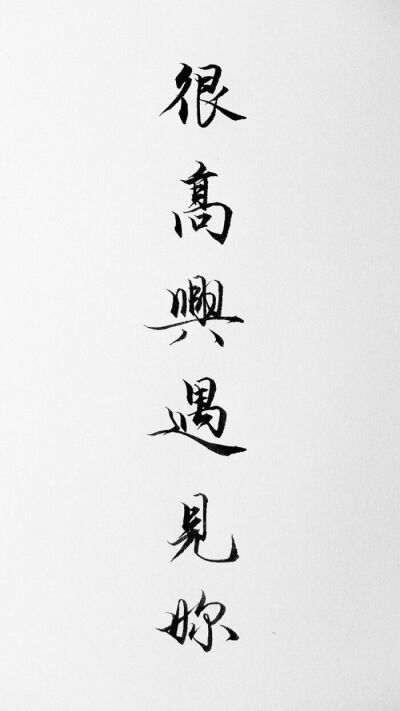 很高興遇見妳